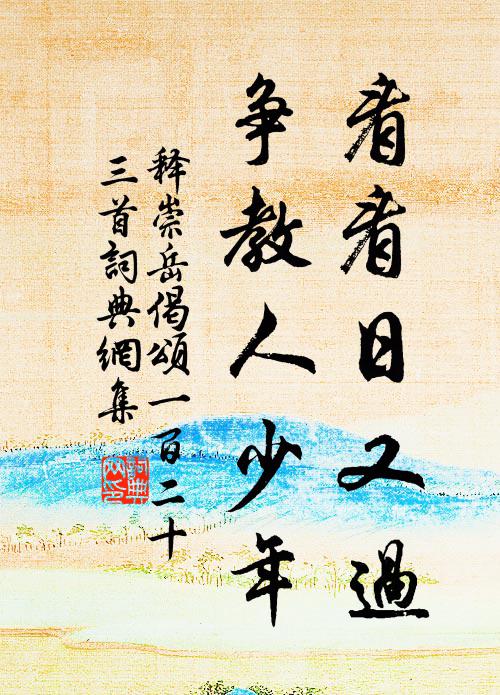 看看日又過
争教人少年
释崇岳偈頌一百二十
三首詞典網集